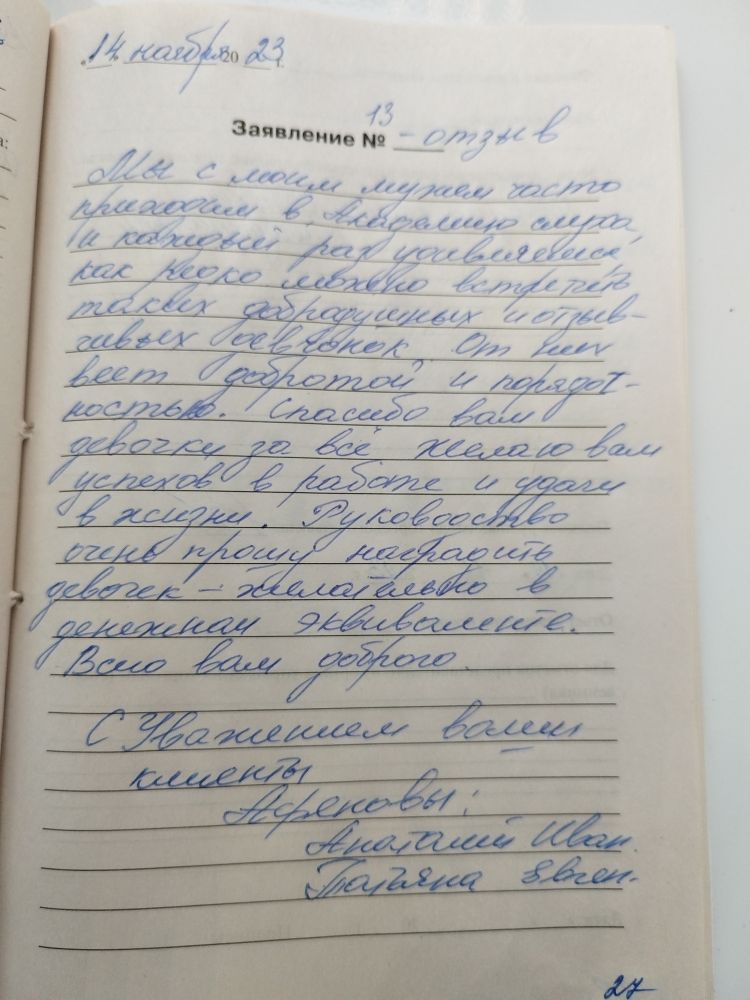 "14" ноября 20 23 г.
Заявление № 13 - отзыв
Мы с моим мужем часто
приходим в Академию слуха
и каждый раз удивляемся,
как редко можно встретить
таких добродушных и отзыв-
чивых девчонок. От них
веет добротой и порядоч-
ностью. Спасибо вам
девочки за всё желаю вам
успехов в работе и удачи
в жизни. Руководство
очень прошу наградить
девочек - желательно в
денежном эквиваленте.
Всего вам доброго.
С Уважением ваши
клиенты
Анатолий Иван.
Татьяна Евген.
27